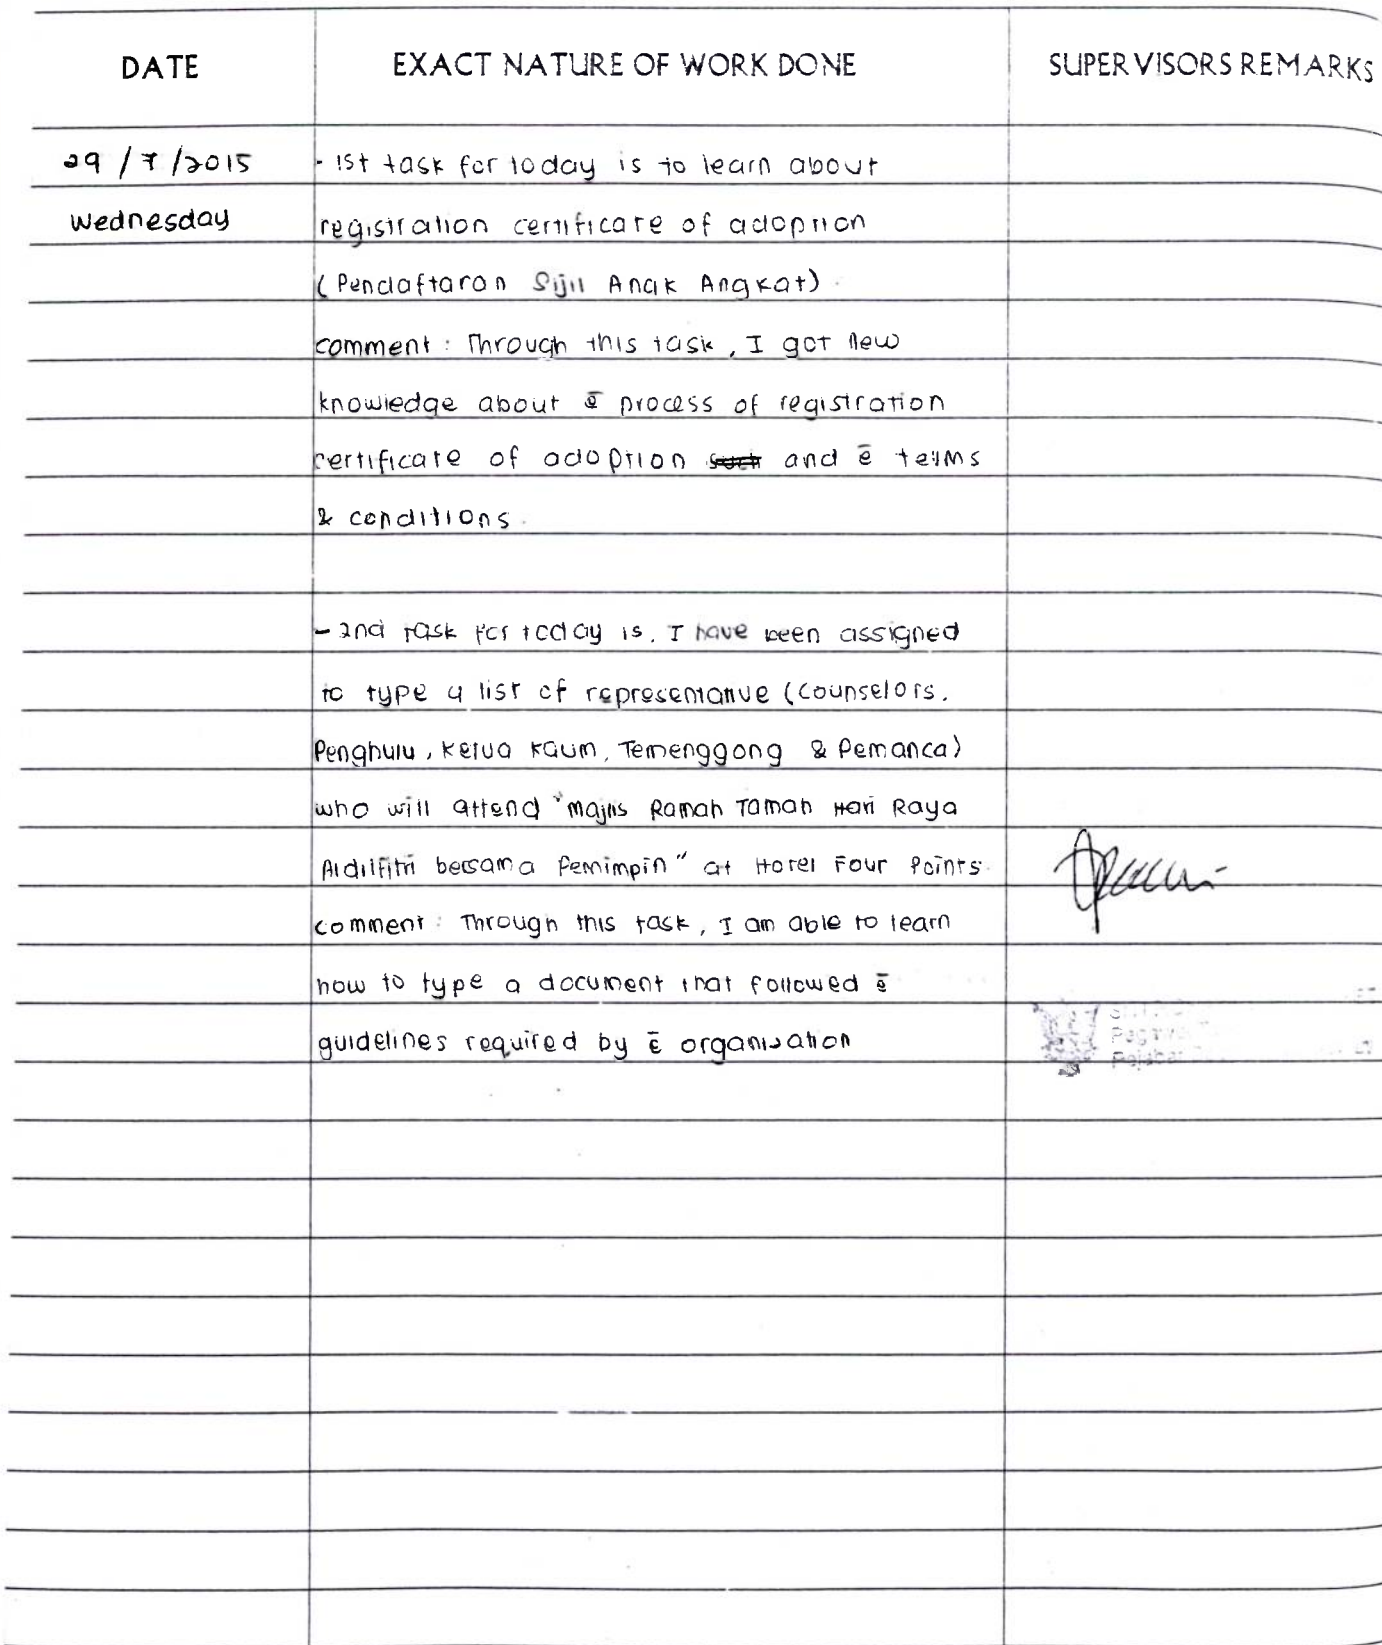 DATE EXACT NATURE OF WORK DONE SUPERVISORS REMARKS
29/7/2015 - 1st task for today is to learn about
Wednesday registration certificate of adoption
(Pendaftaran Sijil Anak Angkat).
comment: Through this task, I got new
knowledge about ē process of registration
certificate of adoption such and ē terms
& conditions.
- 2nd task for today is, I have been assigned
to type a list of representative (Counselors,
Penghulu, Ketua Kaum, Temenggong & Pemanca)
who will attend "Majlis Ramah Tamah Hari Raya
Aidilfitri bersama Pemimpin" at Hotel Four Points.
comment: Through this task, I am able to learn
how to type a document that followed ē
guidelines required by ē organisation